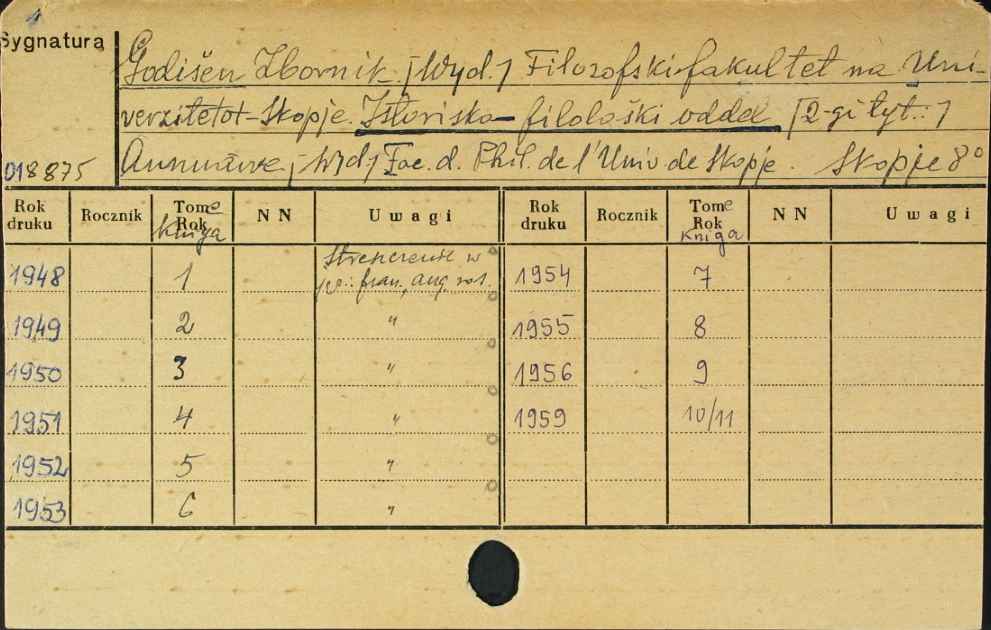 1
Sygnatura
Godišen Zbornik /Wyd./ Filozofski fakultet na Uni-
verzitetot-Skopje. Istorisko-filološki oddel [2-gi tyt.:]
018875
Annuaire /Wyd./ Fac. d. Phil. de l'Univ de Skopje. Skopje 8°
Rok druku Rocznik Tome Rok Kniga NN Uwagi Rok druku Rocznik Tome Rok Kniga NN Uwagi
Streszczenie w
1948 1 jęz.: fran., ang, ros. 1954 7
1949 2 " 1955 8
1950 3 " 1956 9
1951 4 " 1959 10/11
1952 5 "
1953 6 "